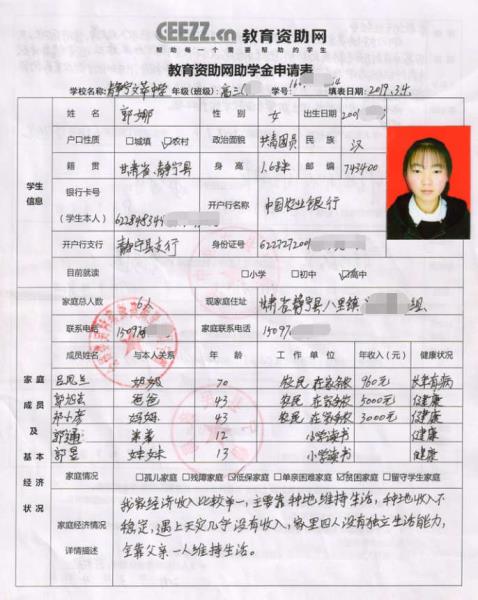 CEEZZ.cn 教育资助网
帮助每一个需要帮助的学生
教育资助网助学金申请表
学校名称: 静宁文萃中学 年级(班级): 高三( 学号: 16 填表日期: 2019.3.4.
学生信息
姓名 郭娜 性别 女 出生日期 2001
户口性质 □城填 ☑农村 政治面貌 共青团员 民族 汉
籍贯 甘肃省静宁县 身高 1.6米 邮编 743400
银行卡号 (学生本人) 622848345 开户行名称 中国农业银行
开户行支行 静宁县支行 身份证号 622727200
目前就读 □小学 □初中 ☑高中
家庭成员及基本经济状况
家庭总人数 6人 现家庭住址 甘肃省静宁县八里镇 组
联系电话 15097 家庭联系电话 15097
成员姓名 与本人关系 年龄 工作单位 年收入(元) 健康状况
奶奶 70 农民 在家务农 960元 长年有病
爸爸 43 农民 在家务农 5000元 健康
妈妈 43 农民 在家务农 3000元 健康
郭通 弟弟 12 小学读书 健康
郭昱 妹妹 13 小学读书 健康
家庭情况 □孤儿家庭 □残障家庭 ☑低保家庭 □单亲困难家庭 ☑贫困家庭 □留守学生家庭
家庭经济情况详情描述
我家经济收入比较单一,主要靠种地维持生活,种地收入不
稳定,遇上天灾几乎没有收入,家里四人没有独立生活能力,
全靠父亲一人维持生活。